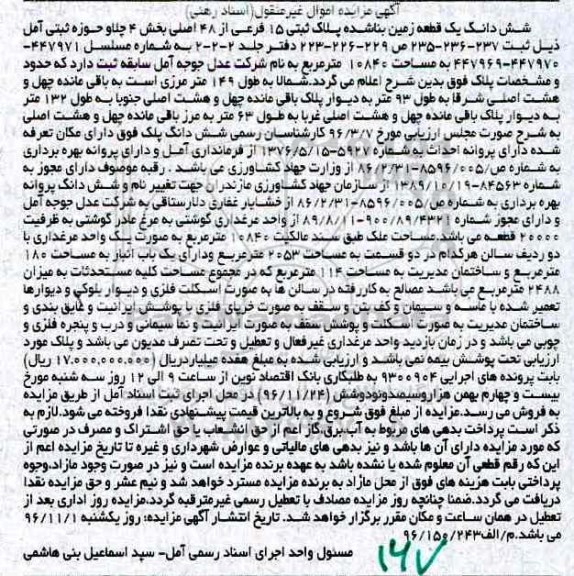 آگهی مزایده اموال غیرمنقول(اسناد رهنی)
شش دانگ یک قطعه زمین بناشده پلاک ثبتی ۱۵ فرعی از ۴۸ اصلی بخش ۴ چلاو حوزه ثبتی آمل
ذیل ثبت ۲۳۷-۲۳۶-۲۳۵ ص ۲۲۹-۲۲۶-۲۲۳ دفتر جلد ۲-۲-۲ به شماره مسلسل ۴۴۷۹۷۱-
۴۴۷۹۷۰-۴۴۷۹۶۹ به مساحت ۱۰۸۴۰ مترمربع به نام شرکت عدل جوجه آمل سابقه ثبت دارد که حدود
و مشخصات پلاک فوق بدین شرح اعلام می گردد.شمالا به طول ۱۴۹ متر مرزی است به باقی مانده چهل و
هشت اصلی شرقا به طول ۹۳ متر به دیوار پلاک باقی مانده چهل و هشت اصلی جنوبا به طول ۱۳۲ متر
به دیوار پلاک باقی مانده چهل و هشت اصلی غربا به طول ۶۳ متر به مرز باقی مانده چهل و هشت اصلی
به شرح صورت مجلس ارزیابی مورخ ۹۶/۳/۷ کارشناسان رسمی شش دانگ پلک فوق دارای مکان تعرفه
شده دارای پروانه احداث به شماره ۵۹۲۷-۱۳۷۶/۵/۱۵ از فرمانداری آمل و دارای پروانه بهره برداری
به شماره ص/۸۵۹۶/۰۰۵-۸۶/۲/۳۱ از وزارت جهاد کشاورزی می باشد . رقبه موصوف دارای مجوز به
شماره ۸۴۵۶۳-۱۳۸۹/۱۰/۱۹ از سازمان جهاد کشاورزی مازندران جهت تغییر نام و شش دانگ پروانه
بهره برداری به شماره ص/۸۵۹۶/۰۰۵-۸۶/۲/۳۱ از خشایار غفاری دلارستاقی به شرکت عدل جوجه آمل
و دارای مجوز شماره ۹۰۰/۸۹/۴۳۲۱-۸۹/۸/۱۱ از واحد مرغداری گوشتی به مرغ مادر گوشتی به ظرفیت
۲۰۰۰۰ قطعه می باشد.مساحت ملک طبق سند مالکیت ۱۰۸۴۰ مترمربع به صورت یک واحد مرغداری با
دو ردیف سالن هرکدام در دو قسمت به مساحت ۲۰۵۳ مترمربع ودارای یک باب انبار به مساحت ۱۸۰
مترمربع و ساختمان مدیریت به مساحت ۱۱۴ مترمربع که در مجموع مساحت کلیه مستحدثات به میزان
۲۴۸۸ مترمربع می باشد مصالح به کاررفته در سالن ها به صورت اسکلت فلزی و دیوار بلوکی و دیوارها
تعمیر شده با ماسه و سیمان و کف بتن و سقف به صورت خرپای فلزی با پوشش ایرانیت و عایق بندی و
ساختمان مدیریت به صورت اسکلت و پوشش سقف به صورت ایرانیت و نما سیمانی و درب و پنجره فلزی و
چوبی می باشد و در زمان بازدید واحد مرغداری غیرفعال و تعطیل و تحت تصرف مدیون می باشد و پلاک مورد
ارزیابی تحت پوشش بیمه نمی باشد و ارزیابی شده به مبلغ هفده میلیاردریال (۱۷.۰۰۰.۰۰۰.۰۰۰ ریال)
بابت پرونده های اجرایی ۹۳۰۰۹۰۴ به طلبکاری بانک اقتصاد نوین از ساعت ۹ الی ۱۲ روز سه شنبه مورخ
بیست و چهارم بهمن هزاروسیصدونودوشش (۹۶/۱۱/۲۴) در محل اجرای ثبت اسناد آمل از طریق مزایده
به فروش می رسد.مزایده از مبلغ فوق شروع و به بالاترین قیمت پیشنهادی نقدا فروخته می شود.لازم به
ذکر است پرداخت بدهی های مربوط به آب،برق،گاز اعم از حق انشعاب یا حق اشتراک و مصرف در صورتی
که مورد مزایده دارای آن ها باشد و نیز بدهی های مالیاتی و عوارض شهرداری و غیره تا تاریخ مزایده اعم از
این که رقم قطعی آن معلوم شده یا نشده باشد به عهده برنده مزایده است و نیز در صورت وجود مازاد،وجوه
پرداختی بابت هزینه های فوق از محل مازاد به برنده مزایده مسترد خواهد شد و نیم عشر و حق مزایده نقدا
دریافت می گردد.ضمنا چنانچه روز مزایده مصادف با تعطیل رسمی غیرمترقبه گردد،مزایده روز اداری بعد از
تعطیل در همان ساعت و مکان مقرر برگزار خواهد شد. تاریخ انتشار آگهی مزایده: روز یکشنبه ۹۶/۱۱/۱
می باشد.م/الف۹۶/۱۵۰/۲۴۳
مسئول واحد اجرای اسناد رسمی آمل- سید اسماعیل بنی هاشمی
۱۶۷